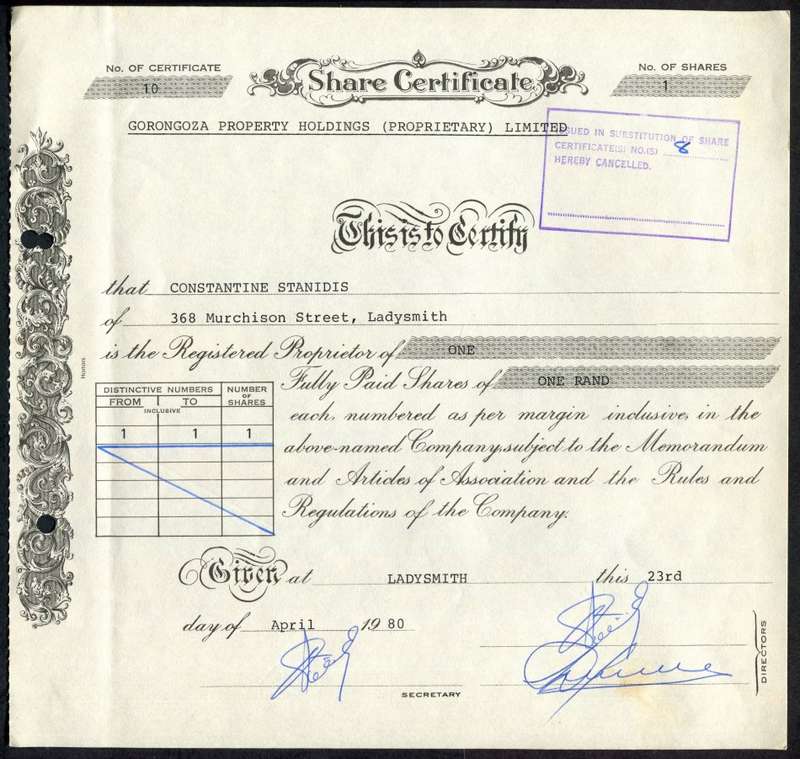 No. OF CERTIFICATE
10
Share Certificate
No. OF SHARES
1
GORONGOZA PROPERTY HOLDINGS (PROPRIETARY) LIMITED
ISSUED IN SUBSTITUTION OF SHARE
CERTIFICATE(S) NO.(S) 8
HEREBY CANCELLED.
This is to Certify
that CONSTANTINE STANIDIS
of 368 Murchison Street, Ladysmith
is the Registered Proprietor of ONE
Fully Paid Shares of ONE RAND
each, numbered as per margin inclusive, in the
above-named Company, subject to the Memorandum
and Articles of Association and the Rules and
Regulations of the Company.
DISTINCTIVE NUMBERS
NUMBER OF SHARES
FROM TO
INCLUSIVE
1 1 1
Given at LADYSMITH this 23rd
day of April 1980
SECRETARY
DIRECTORS